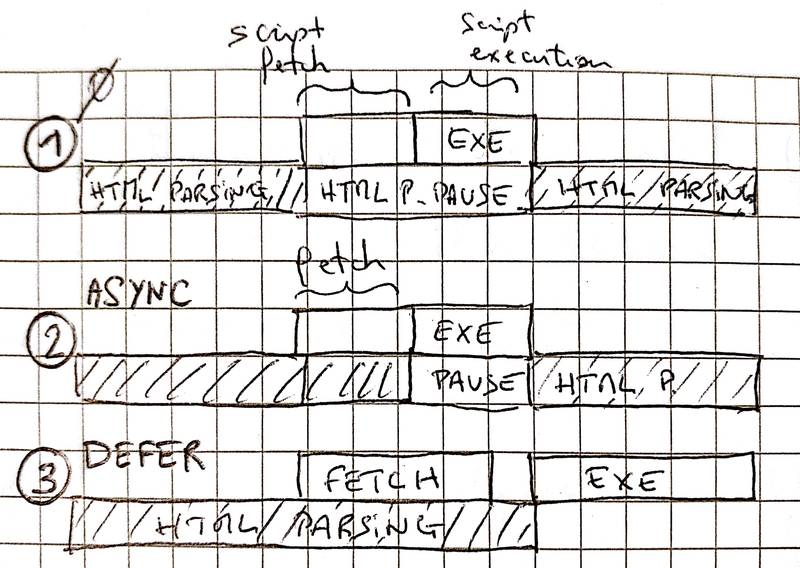 script fetch
script execution
Ø
1
EXE
HTML PARSING
HTML P. PAUSE
HTML PARSING
ASYNC
fetch
2
EXE
PAUSE
HTML P.
DEFER
3
FETCH
EXE
HTML PARSING